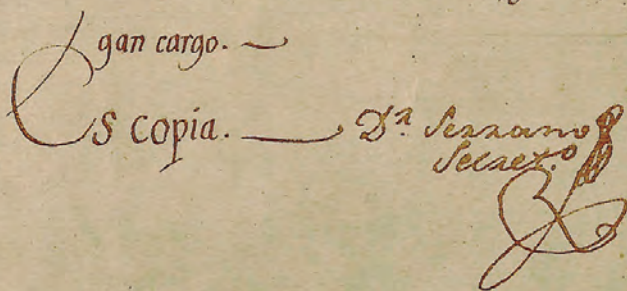 gan cargo.
Es copia. Dr. Serrano
Secret.o